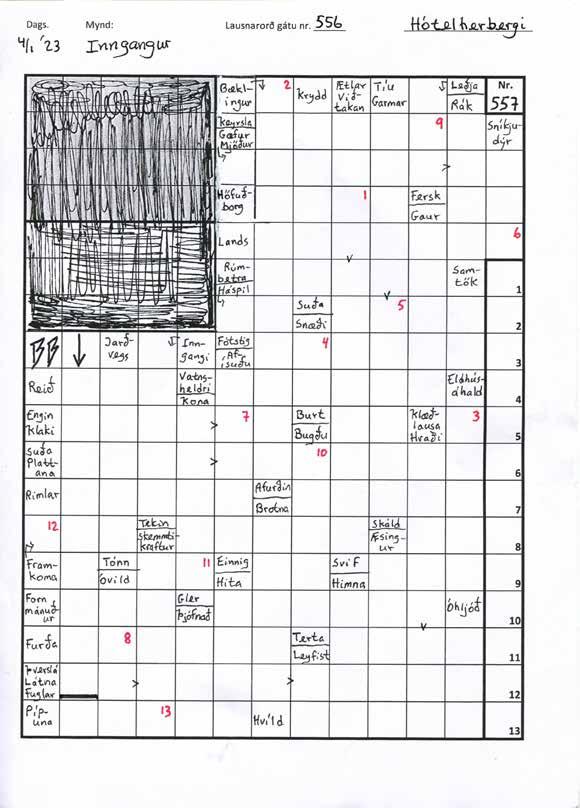 Dags. Mynd: Lausnarorð gátu nr. 556 Hótelherbergi
4/1 '23 Inngangur
Bækl-
ingur
2
Krydd
Ætlar
Við
takan
Tíu
Garmar
Leðja
Rák
Nr.
557
Keyrsla
Gæfur
Mjöður
9
Sníkju-
dýr
Höfuð-
borg
1
Fersk
Gaur
Lands
6
Rúm-
betra
Háspil
Sam-
tök
1
Suða
Snæði
5
2
BB
Jarð-
vegs
Inn-
gangi
Fótstig
Af-
suðu
4
3
Reið
Vatns-
heldri
Kona
Eldhús-
áhald
4
Engin
Klaki
7
Burt
Bugðu
Klæð-
lausa
Hraði
3
5
Suða
Platt-
ana
10
6
Rimlar
Afurðin
Brotna
7
12
Tekin
Skemmti-
kraftur
Skáld
Æsing-
ur
8
Fram-
koma
Tónn
Óvild
11
Einnig
Hita
Svif
Himna
9
Forn
mánuð
ur
Gler
Þjófnað
Óhljóð
10
Furða
8
Terta
Leyfist
11
Þverslá
Látna
Fuglar
12
Píp-
una
13
Hvíld
13